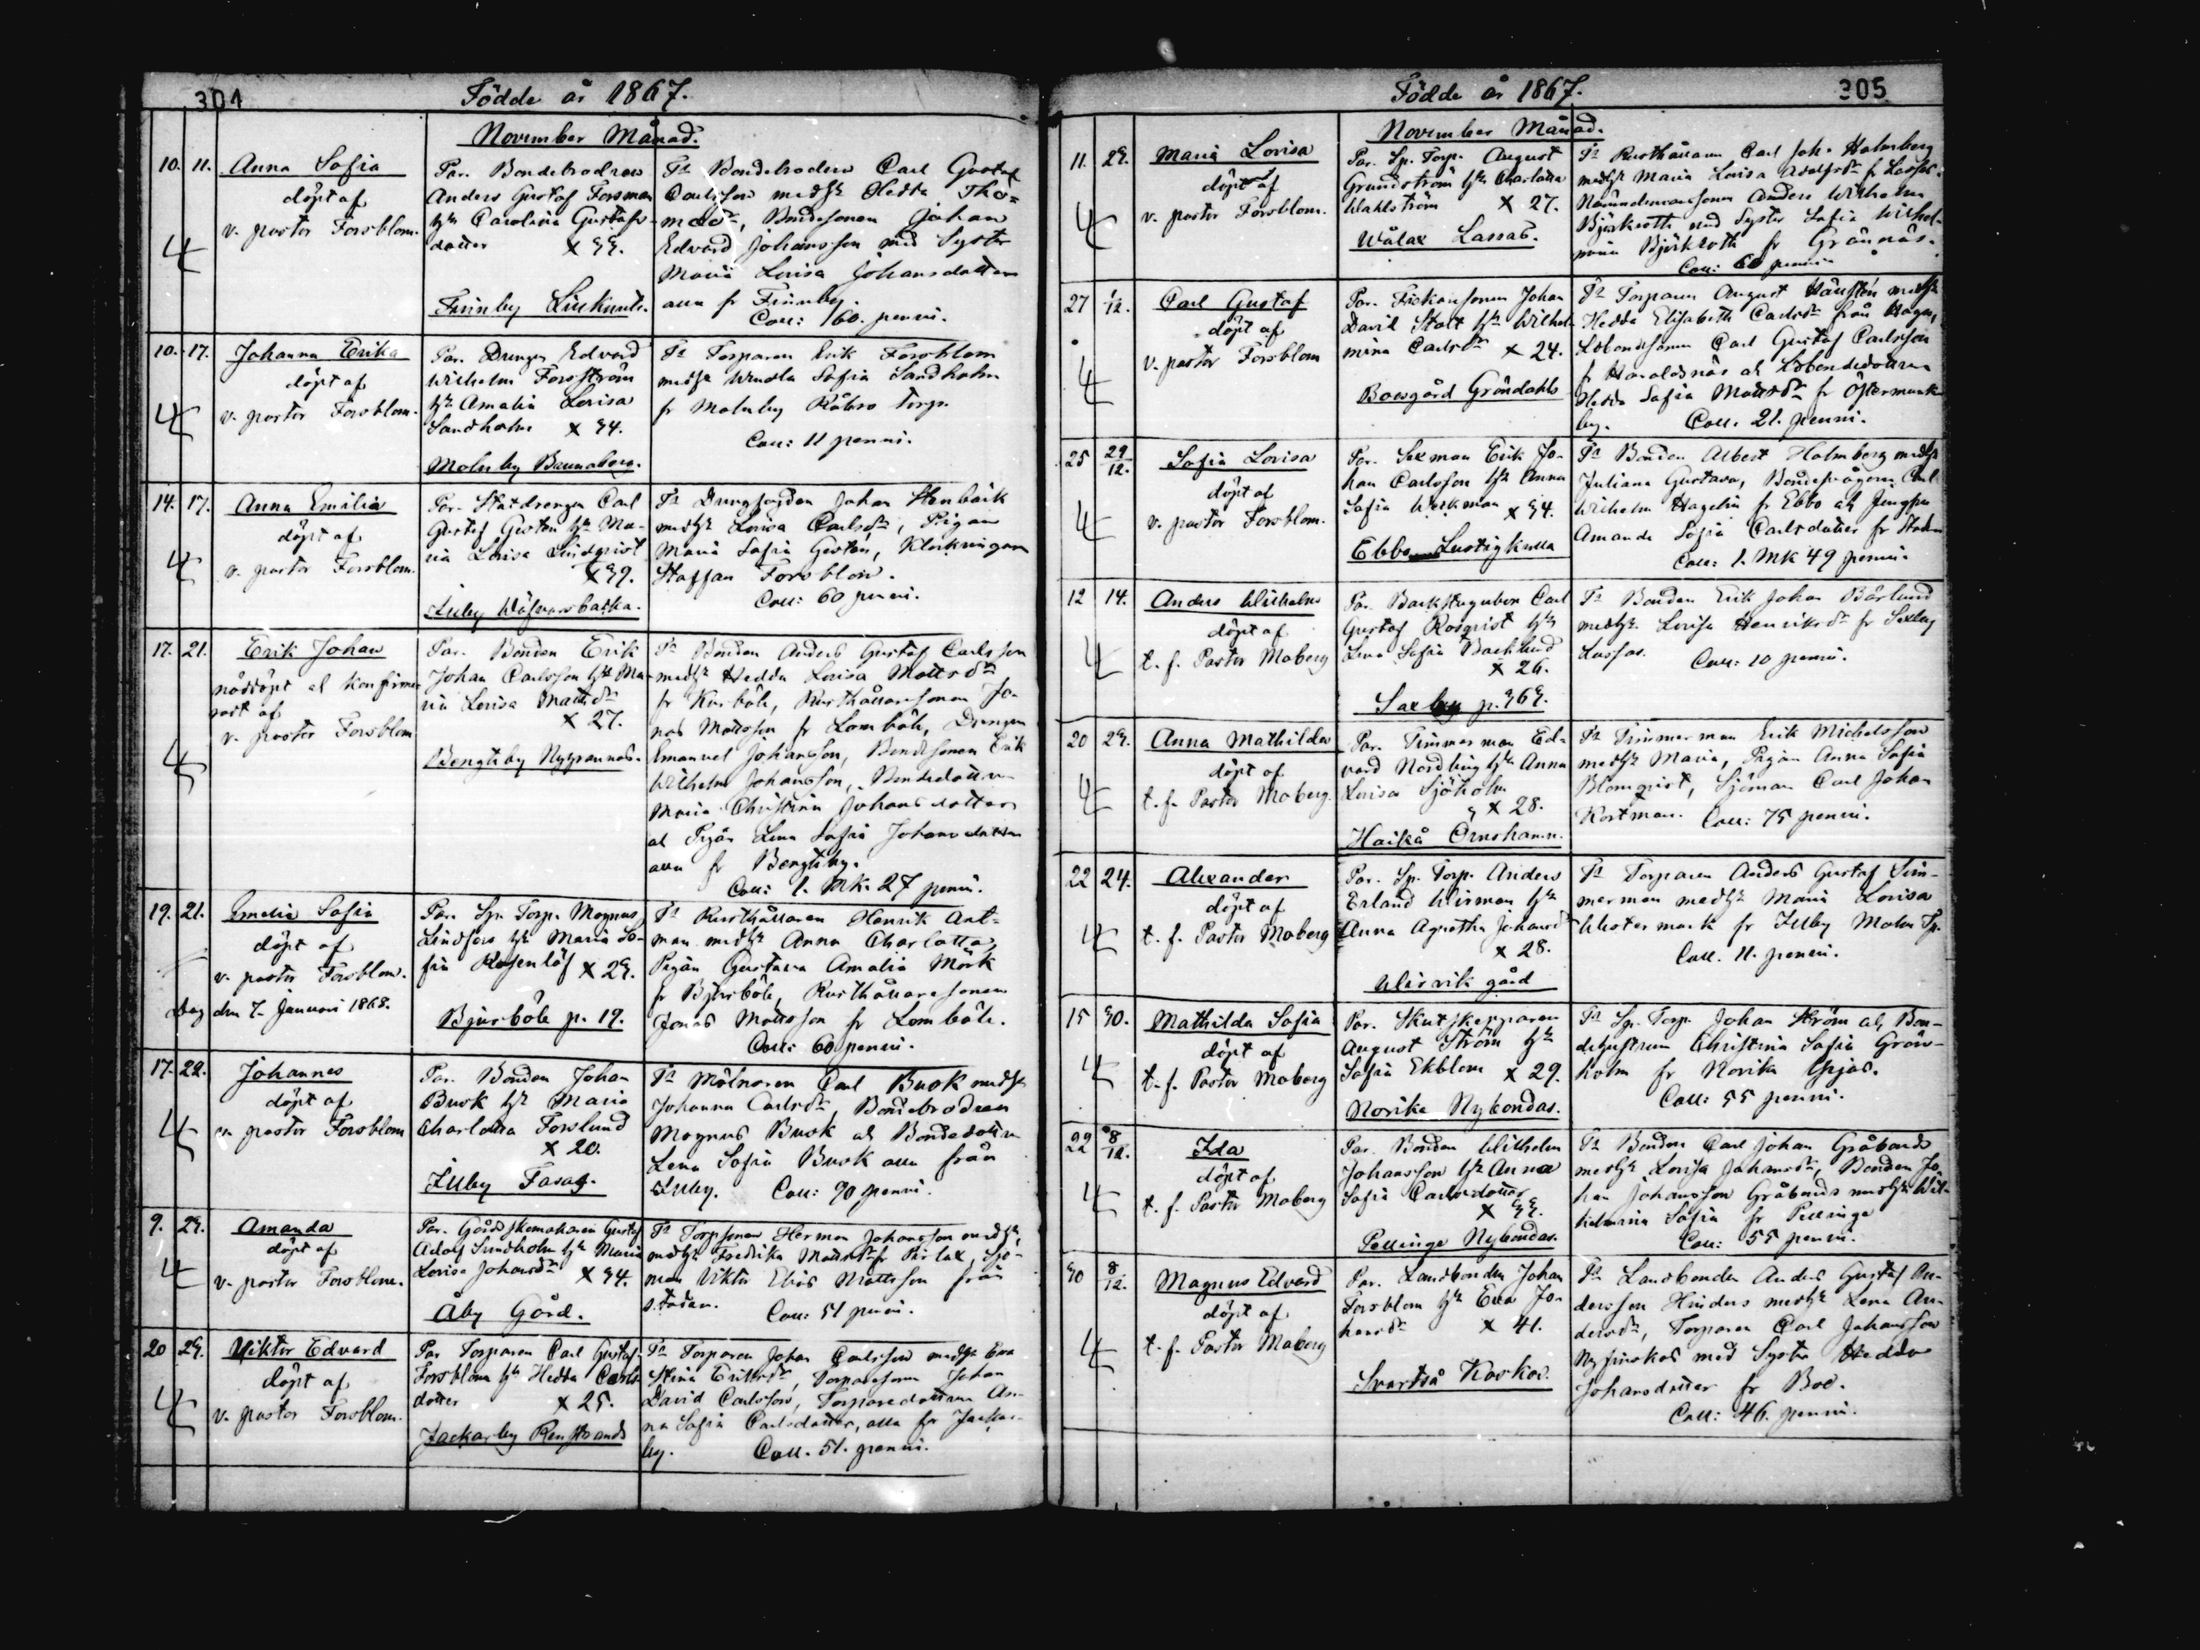 304
Födde år 1867.
November Månad.
10. 11. Anna Sofia
döpt af
v. pastor Forsblom.
Par. Bondebrodren
Anders Gustaf Forsman
hu Carolina Gustafs-
dotter x 33.
Finnby
Fr Bondebrodern Carl Gustaf
Carlsson med Hedda Tho-
Bondesonen Johan
Edvard Johansson med Syster
Maria Lovisa Johansdotter
alla fr Finnby.
Coll: 60. penni.
10. 17. Johanna Erika
döpt af
v. pastor Forsblom.
Par. Drengen Edvard
Wilhelm Forsström
hu Amalia Lovisa
Sandholm x 34.
Molnby
Fr Torparen Erik Forsblom
Sofia Sandholm
fr Molnby torp.
Coll: 11 penni.
14. 17. Anna Emilia
döpt af
v. pastor Forsblom.
Par. Statdrengen Carl
Gustaf hu Ma-
ria Lovisa Lindqvist
x 39.
Illby
Fr Johan Stenbäck
Lovisa Carlsdr, Pigan
Maria Sofia
Staffan Forsblom.
Coll: 60 penni.
17. 21. Erik Johan
nöddöpt och konfirme-
rat af
v. pastor Forsblom
Par. Bonden Erik
Johan Carlsson hu Ma-
ria Lovisa Mattsdr
x 27.
Bengtsby
Fr Bonden Anders Gustaf Carlsson
Hedda Lovisa Mattsdr
fr Kurböle, Rusthållaresonen Jo-
nas Mattsson fr Lomböle, Drengen
Emanuel Johansson, Bondesonen Erik
Wilhelm Johansson, Bondedottren
Maria Christina Johansdotter
och Pigan Lena Sofia Johansdotter
alla fr Bengtsby.
Coll: 1. Mk. 27 penni.
19. 21. Emelie Sofia
döpt af
v. pastor Forsblom.
den 7. Januari 1868.
Par. Sp. Torp. Magnus
Lindfors hu Maria So-
fia Rosenlöf x 23.
Bjurböle p. 19.
Fr Rusthållaren Henrik Ant-
man Anna Charlotta,
Pigan Gustava Amalia Mörk
fr Bjurböle, Rusthållaresonen
Jonas Mattsson fr Lomböle.
Coll: 60 penni.
17. 22. Johannes
döpt af
v. pastor Forsblom
Par. Bonden Johan
Busk hu Maria
Charlotta Forslund
x 20.
Illby Fasas.
Fr Mölnaren Carl Busk
Johanna Carlsdr, Bondebrodren
Magnus Busk och Bondedottren
Lena Sofia Busk alla från
Illby. Coll: 30 penni.
9. 23. Amanda
döpt af
v. pastor Forsblom.
Par. Gårdsskomakaren Gustaf
Adolf Sundholm hu Maria
Lovisa Johansdr x 34.
Åby Gård.
Fr Torpsonen Herman Johansson
Fredrika Mattsdr fr Pirlax, Sjö-
man Viktor Elias Mattsson från
Staden. Coll: 51 penni.
20 23. Viktor Edvard
döpt af
v. pastor Forsblom.
Par Torparen Carl Gustaf
Forsblom hu Hedda Carls-
dotter x 25.
Jackarby
Fr Torparen Johan Carlsson Eva
Stina Eriksdr, Torparesonen Johan
David Carlsson, Torparedottren An-
na Sofia Carlsdotter, alla fr Jackar-
by. Coll. 51. penni.
Födde år 1867.
305
November Månad.
11. 23. Maria Lovisa
döpt af
v. pastor Forsblom.
Par. Sp. Torp. August
Grundström hu Charlotta
Wahlström x 27.
Wålax Lassas.
Fr Rusthållaren Carl Joh. Holmberg
Maria Lovisa Adolfsdr fr
Anders Wilhelm
Björkroth med Syster Sofia Wilhel-
mina Björkroth fr Grännäs.
Coll: 60 penni
27 1/12. Carl Gustaf
döpt af
v. pastor Forsblom
Par. Johan
David Stolt hu Wilhel-
mina Carlsdr x 24.
Boesgård Gröndahls
Fr Torparen August
Hedda Elisabeth Carlsdr från Haga,
Carl Gustaf Carlsson
fr Haraldsnäs och
Hedda Sofia Mattsdr fr Östermunk-
by. Coll. 21. penni.
25 29/12. Sofia Lovisa
döpt af
v. pastor Forsblom.
Par. Sexman Erik Jo-
han Carlsson hu Anna
Sofia Wickman x 34.
Ebbo Lustigkulla
Fr Bonden Albert Holmberg
Juliana Gustava, Carl
Wilhelm Hagelin fr Ebbo och Jungfru
Amanda Sofia Carlsdotter fr Staden
Coll: 1. Mk 49 penni.
12 14. Anders Wilhelm
döpt af
t. f. Pastor Moberg
Par. Backstugubon Carl
Gustaf Rosqvist hu
Lena Sofia Backlund
x 26.
Saxby p. 363.
Fr Bonden Erik Johan Bärlund
Lovisa Henriksdr fr Saxby
Lassas. Coll: 10 penni.
20 23. Anna Mathilda
döpt af
t. f. Pastor Moberg.
Par. Timmerman Ed-
vard Nordling hu Anna
Lovisa Sjöholm
x 28.
Haikå Ornshamn.
Fr Timmerman Erik Michelsson
Maria, Pigan Anna Sofia
Blomqvist, Sjöman Carl Johan
Kortman. Coll: 75 penni.
22 24. Alexander
döpt af
t. f. Pastor Moberg
Par. Sp. Torp. Anders
Erland hu
Anna Agnetha Johansdr
x 28.
gård
Fr Torparen Anders Gustaf Sim-
merman Maria Lovisa
Westermark fr Illby Malm Tp.
Coll. 11. penni.
15 30. Mathilda Sofia
döpt af
t. f. Pastor Moberg
Par. Skutskepparen
August Ström hu
Sofia Ekblom x 29.
Norike Nybondas.
Fr Sp. Torp. Johan Ström och Bon-
dehustrun Christina Sofia Grön-
holm fr Norike
Coll: 55 penni.
22 8/12. Ida
döpt af
t. f. Pastor Moberg
Par. Bonden Wilhelm
Johansson hu Anna
Sofia Carlsdotter
x 33.
Pellinge Nybondas.
Fr Bonden Carl Johan Gråbonds
Lovisa Johansdr, Bonden Jo-
han Johansson Gråbonds Wil-
helmina Sofia fr Pellinge
Coll: 55 penni.
30 8/12. Magnus Edvard
döpt af
t. f. Pastor Moberg
Par. Landbonden Johan
Forsblom hu Eva Jo-
hansdr x 41.
Svartså Koskas.
Fr Landbonden Anders Gustaf An-
dersson Hinders Lena An-
dersdr, Torparen Carl Johansson
med Syster Hedda
Johansdotter fr Boe.
Coll: 46. penni.